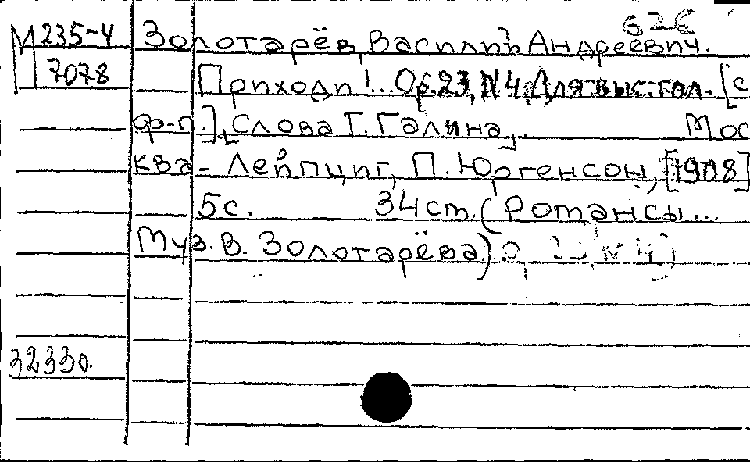 626
М 235-4 Золотарёв, Василiй Андреевич.
7078 Приходи!.. Ор. 23, N 4. Для выс. гол. [с
ф-п.], Слова Г. Галина, Мос
ква - Лейпциг, П. Юргенсон, [1908]
5 с. 34 cm. (Романсы...
Муз. В. Золотарёва)
32330.